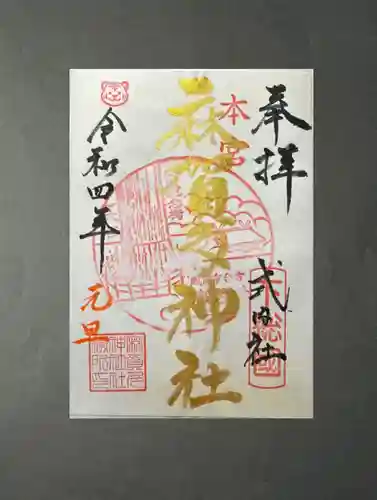 奉拝
式内社
本宮
麻賀多神社
令和四年
元旦